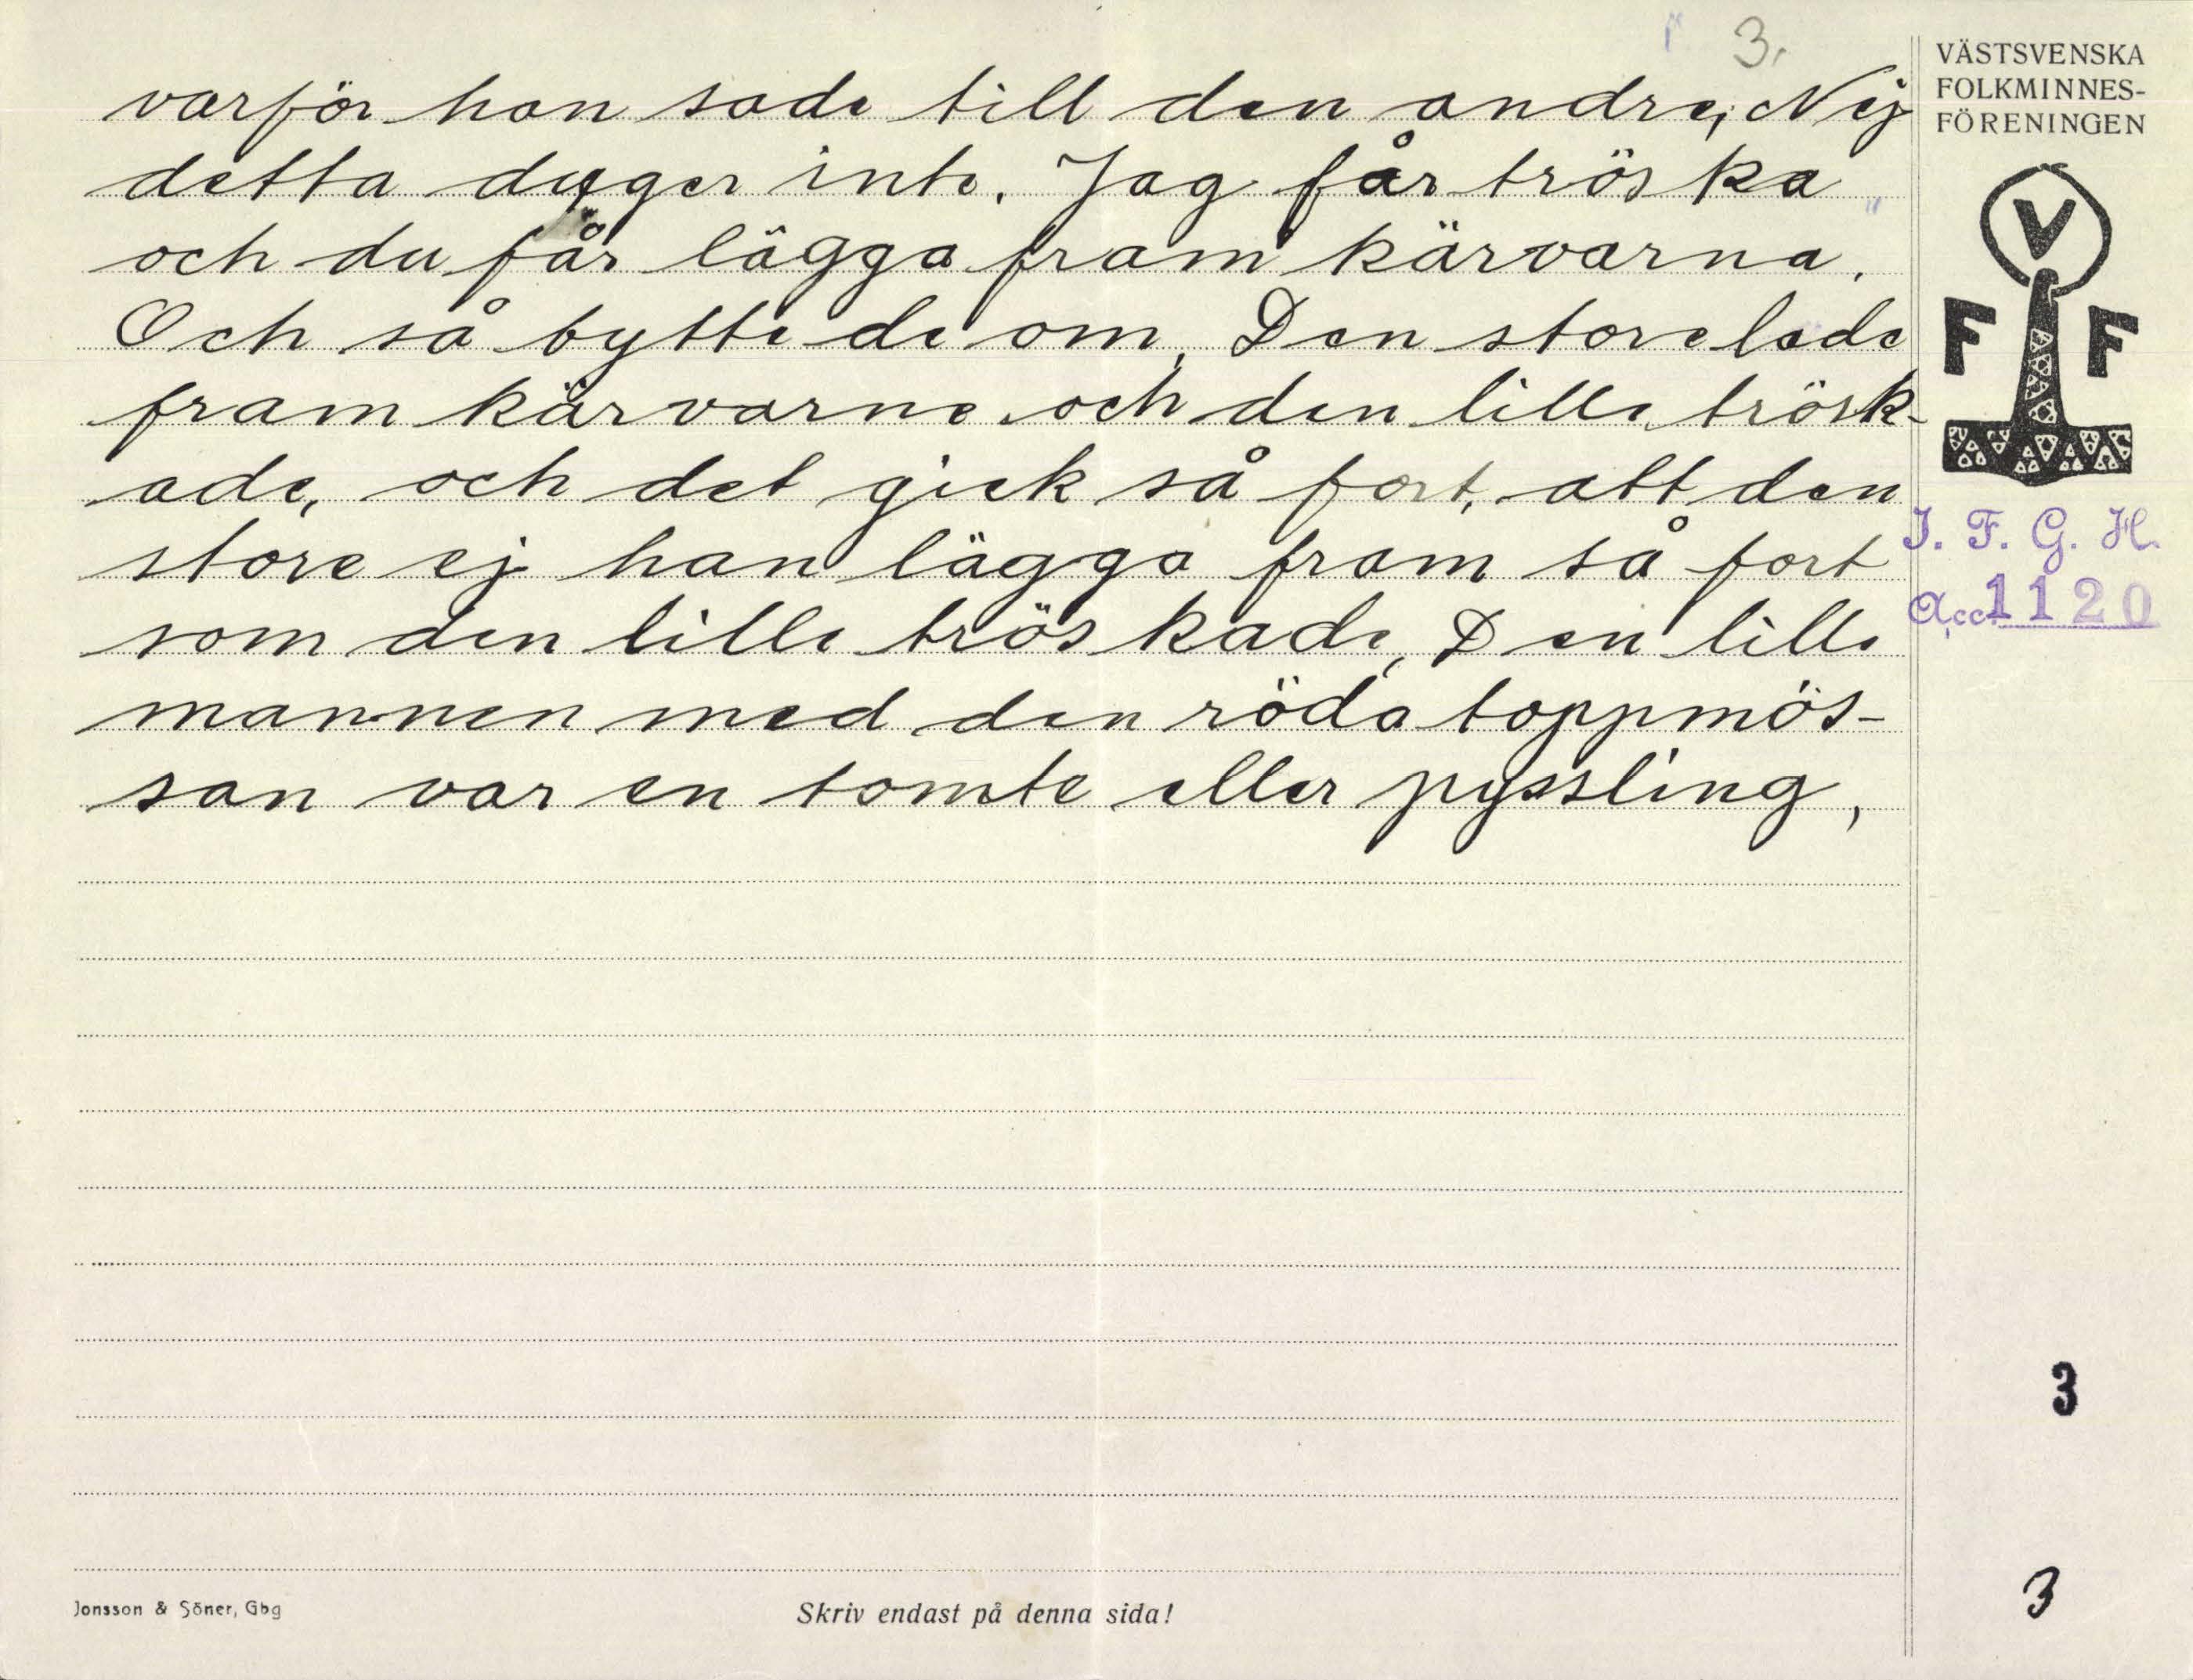 3.
varför han sade till den andre; "Nej
detta duger inte. Jag får tröska
och du får lägga fram kärvarna."
Och så bytte de om. Den store lade
fram kärvarne och den lille trösk-
ade, och det gick så fort, att den
store ej hann lägga fram så fort
som den lille tröskade, Den lille
mannen med den röda toppmös-
san var en tomte eller pyssling,
VÄSTSVENSKA
FOLKMINNES-
FÖRENINGEN
V
F F
I. F. G. H.
Acc. 1120
3
3
Jonsson & Söner, Gbg
Skriv endast på denna sida!